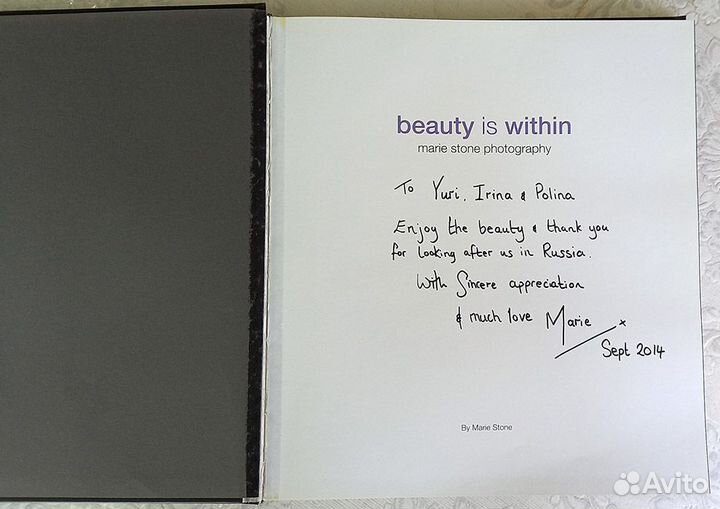 beauty is within
marie stone photography
To Yuri, Irina & Polina
Enjoy the beauty & thank you
for looking after us in Russia.
With Sincere appreciation
& much love Marie x
Sept 2014
By Marie Stone
Avito